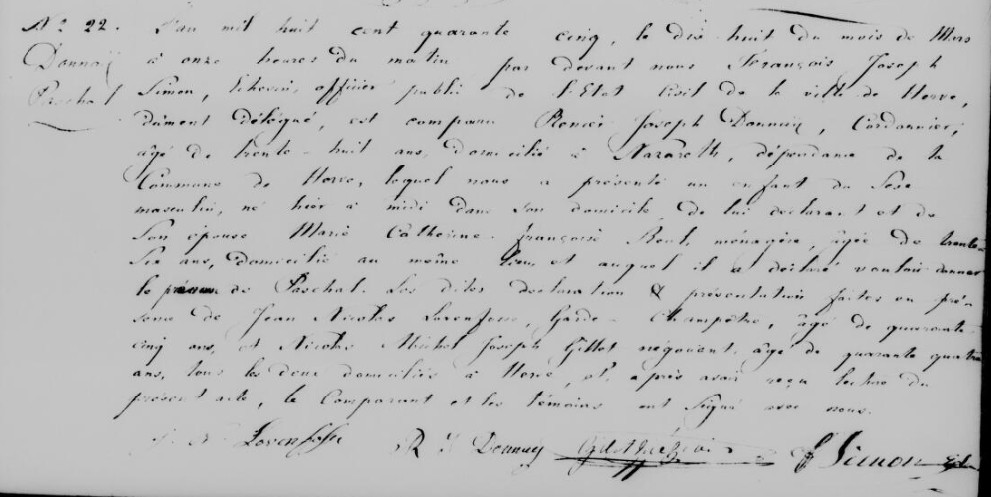 N° 22. L'an mil huit cent quarante cinq, le dix huit du mois de Mars
Donnay à onze heures du matin par devant nous François Joseph
Paschal Simon, Echevin, officier public de l'Etat Civil de la ville de Herve,
dûment délégué, est comparu Renier Joseph Donnay, Cordonnier,
âgé de trente-huit ans, domicilié à Nazareth, dépendance de la
Commune de Herve, lequel nous a présenté un enfant du Sexe
masculin, né hier à midi dans son domicile, de lui déclarant et de
Son épouse Marie Catherine françoise, ménagère, âgée de trente-
Six ans, domiciliée au même lieu et auquel il a déclaré vouloir donner
le prénom de Paschal. Les dites déclaration & présentation faites en pré-
sence de Jean Nicolas Lorenfosse, Garde-Champêtre, âgé de quarante-
cinq ans, et Nicolas Michel Joseph Gillot négociant, âgé de quarante quatre
ans, tous les deux domiciliés à Herve, et après avoir reçu lecture du
présent acte, le Comparant et les témoins ont Signé avec nous.
J. N. Lorenfosse R J Donnay F J Simon